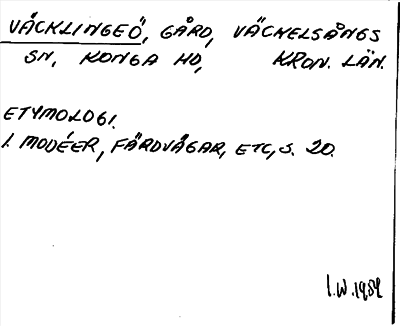 VÄCKLINGEÖ, GÅRD, VÄCKELSÅNGS
SN, KONGA HD, KRON. LÄN.
ETYMOLOGI.
I. MODÉER, FÄRDVÄGAR, ETC, S. 20.
I.W. 1959